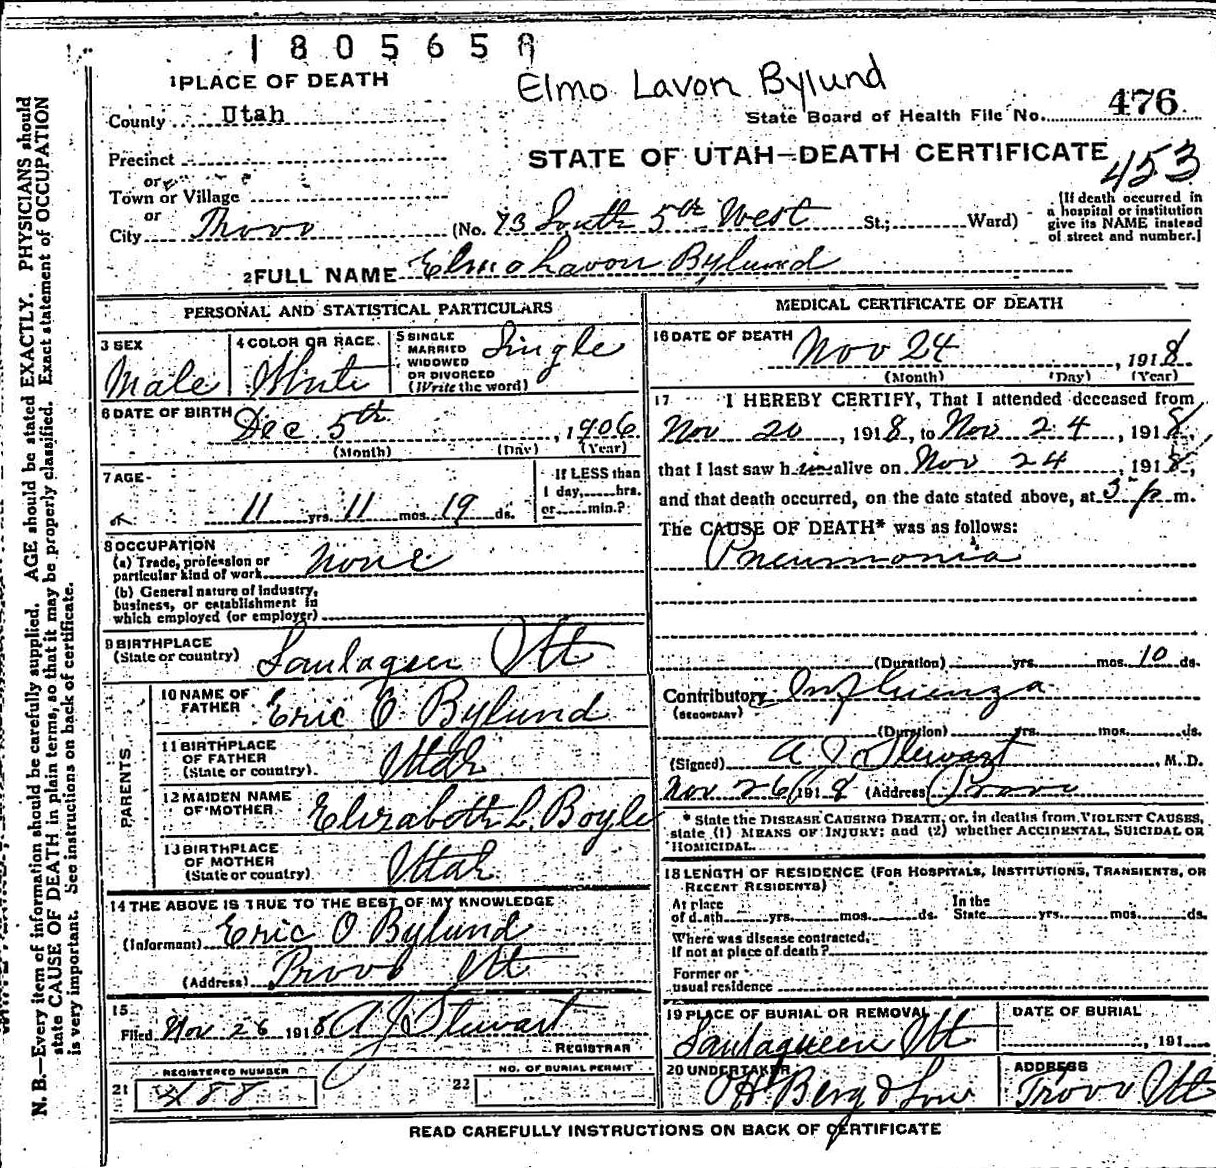 1805658
Elmo Lavon Bylund
1 PLACE OF DEATH
County Utah
State Board of Health File No. 476
Precinct
STATE OF UTAH—DEATH CERTIFICATE
453
or
Town or Village
or
City Provo (No. 73 South 5th West St.; Ward)
[If death occurred in
a hospital or institution
give its NAME instead
of street and number.]
2 FULL NAME Elmo Lavon Bylund
PERSONAL AND STATISTICAL PARTICULARS
3 SEX
Male
4 COLOR OR RACE
White
5 SINGLE
MARRIED
WIDOWED
OR DIVORCED
(Write the word)
Single
6 DATE OF BIRTH
Dec 5th, 1906
(Month) (Day) (Year)
7 AGE
11 yrs. 11 mos. 19 ds.
If LESS than
1 day, hrs.
or min.?
8 OCCUPATION
(a) Trade, profession or
particular kind of work None
(b) General nature of industry,
business, or establishment in
which employed (or employer)
9 BIRTHPLACE
(State or country) Santaquin Ut
PARENTS
10 NAME OF
FATHER Eric O Bylund
11 BIRTHPLACE
OF FATHER
(State or country) Utah
12 MAIDEN NAME
OF MOTHER Elizabeth L. Boyle
13 BIRTHPLACE
OF MOTHER
(State or country) Utah
14 THE ABOVE IS TRUE TO THE BEST OF MY KNOWLEDGE
(Informant) Eric O Bylund
(Address) Provo Ut
15
Filed Nov 26 1918 A J Stewart
REGISTRAR
REGISTERED NUMBER
21 488
NO. OF BURIAL PERMIT
22
MEDICAL CERTIFICATE OF DEATH
16 DATE OF DEATH Nov 24, 1918
(Month) (Day) (Year)
17 I HEREBY CERTIFY, That I attended deceased from
Nov 20, 1918, to Nov 24, 1918,
that I last saw him alive on Nov 24, 1918,
and that death occurred, on the date stated above, at 5 p m.
The CAUSE OF DEATH* was as follows:
Pneumonia
(Duration) yrs. mos. 10 ds.
Contributory Influenza
(SECONDARY)
(Duration) yrs. mos. ds.
(Signed) A J Stewart, M. D.
Nov 26 1918 (Address) Provo
* State the DISEASE CAUSING DEATH, or, in deaths from VIOLENT CAUSES,
state (1) MEANS OF INJURY; and (2) whether ACCIDENTAL, SUICIDAL OR
HOMICIDAL.
18 LENGTH OF RESIDENCE (FOR HOSPITALS, INSTITUTIONS, TRANSIENTS, OR
RECENT RESIDENTS)
At place
of death yrs. mos. ds.
In the
State yrs. mos. ds.
Where was disease contracted,
if not at place of death?
Former or
usual residence
19 PLACE OF BURIAL OR REMOVAL
Santaqueen Ut
DATE OF BURIAL
, 191
20 UNDERTAKER
O H Berg & Son
ADDRESS
Provo Ut
READ CAREFULLY INSTRUCTIONS ON BACK OF CERTIFICATE
N. B.—Every item of information should be carefully supplied. AGE should be stated EXACTLY. PHYSICIANS should
state CAUSE OF DEATH in plain terms, so that it may be properly classified. Exact statement of OCCUPATION
is very important. See instructions on back of certificate.